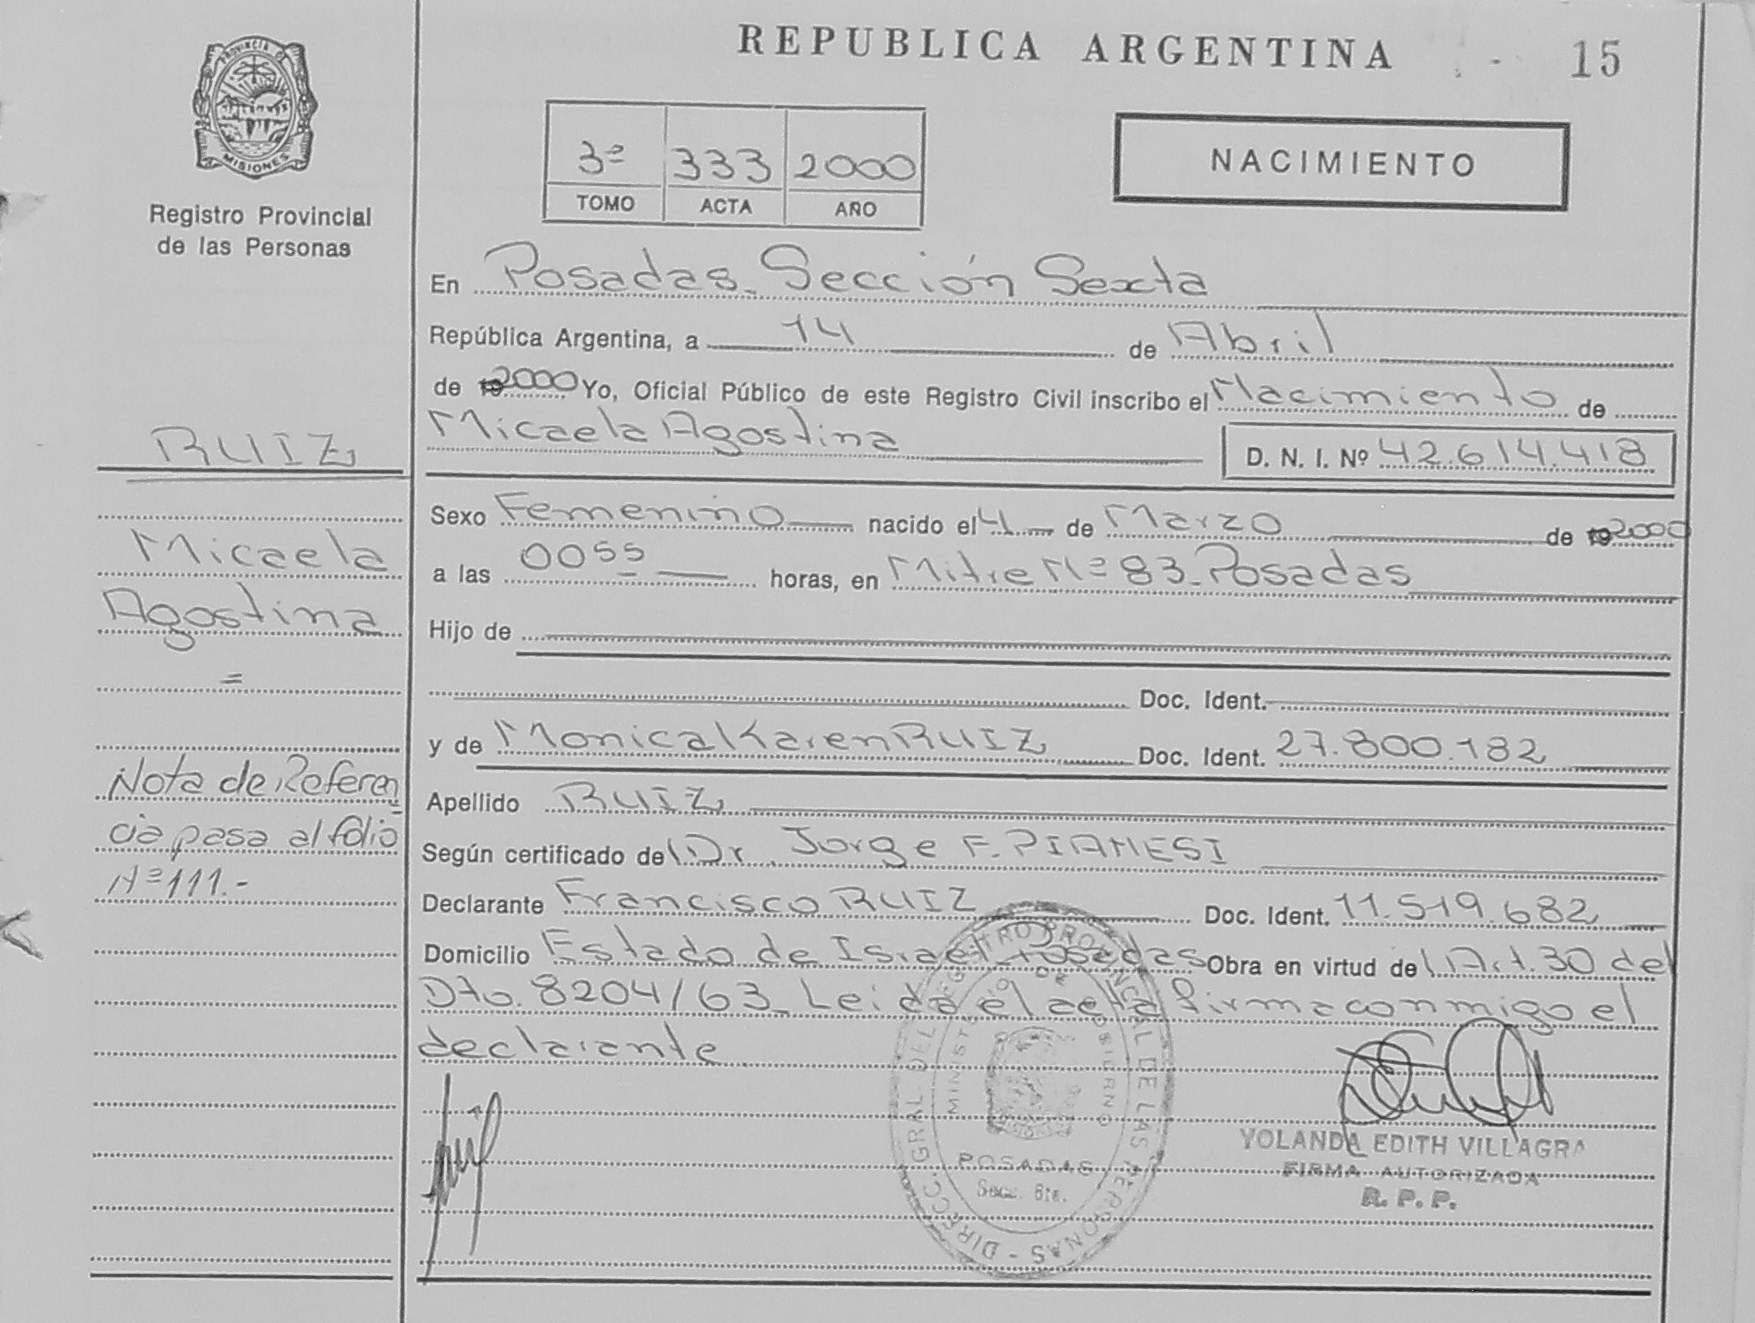 REPUBLICA ARGENTINA
15
PROVINCIA DE
MISIONES
Registro Provincial
de las Personas
3º 333 2000
TOMO ACTA AÑO
NACIMIENTO
En Posadas_ Sección Sexta
República Argentina, a 14 de Abril
de 192000 Yo, Oficial Público de este Registro Civil inscribo el Nacimiento de
Micaela Agostina
D. N. I. Nº 42.614.418
Sexo Femenino nacido el 4 de Marzo de 192000
a las 0055 horas, en Mitre Nº 83_Posadas
Hijo de
Doc. Ident.
y de Monica Karen RUIZ Doc. Ident. 27.800.182
Apellido RUIZ
Según certificado del Dr. Jorge F. PIANESI
Declarante Francisco RUIZ Doc. Ident. 11.519.682
Domicilio Estado de Israel_Posadas Obra en virtud del Art. 30 del
Dto. 8204/63_ Leida el acta firma conmigo el
declarante
RUIZ
Micaela
Agostina
=
Nota de Referen
cia pasa al folio
Nº 111.-
DIRECC. GRAL. DEL REGISTRO PROVINCIAL DE LAS PERSONAS -
MINISTERIO DE GOBIERNO
POSADAS
Secc. 6ta.
YOLANDA EDITH VILLAGRA
FIRMA AUTORIZADA
R. P. P.